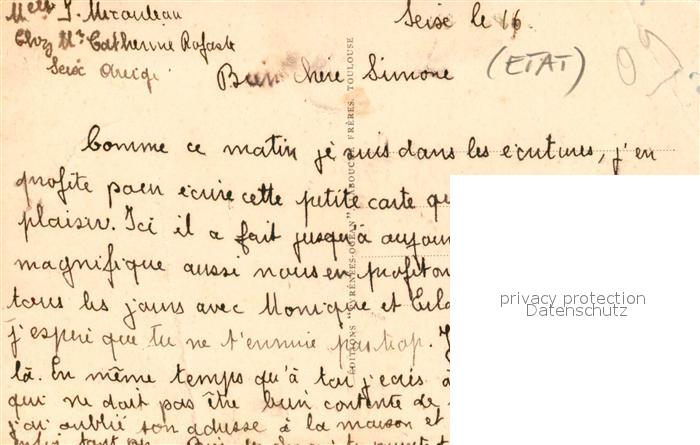 Melle J. Mirouleau Seix le 16
Chez Me Catherine Rofaste
Seix Ariège
Bien chère Simone (ETAT) 09
Comme ce matin je suis dans les écritures, j'en
profite pour écrire cette petite carte qu
plaisir. Ici il a fait jusqu'à aujour
magnifique aussi nous en profiton
tous les jours avec Monique et
j'espère que tu ne t'ennuie pas trop. J
là. En même temps qu'à toi j'écris à
qui ne doit pas être bien contente de
j'ai oublié son adresse à la maison et
EDITIONS "PYRÉNÉES-OCÉAN" LABOUCHE FRÈRES, TOULOUSE
privacy protection
Datenschutz